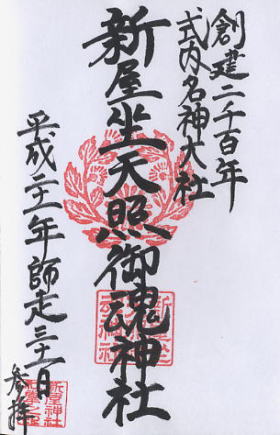 創建二千百年
式内名神大社
新屋坐天照御魂神社
平成二十一年師走三十一日
参拝
新屋神社